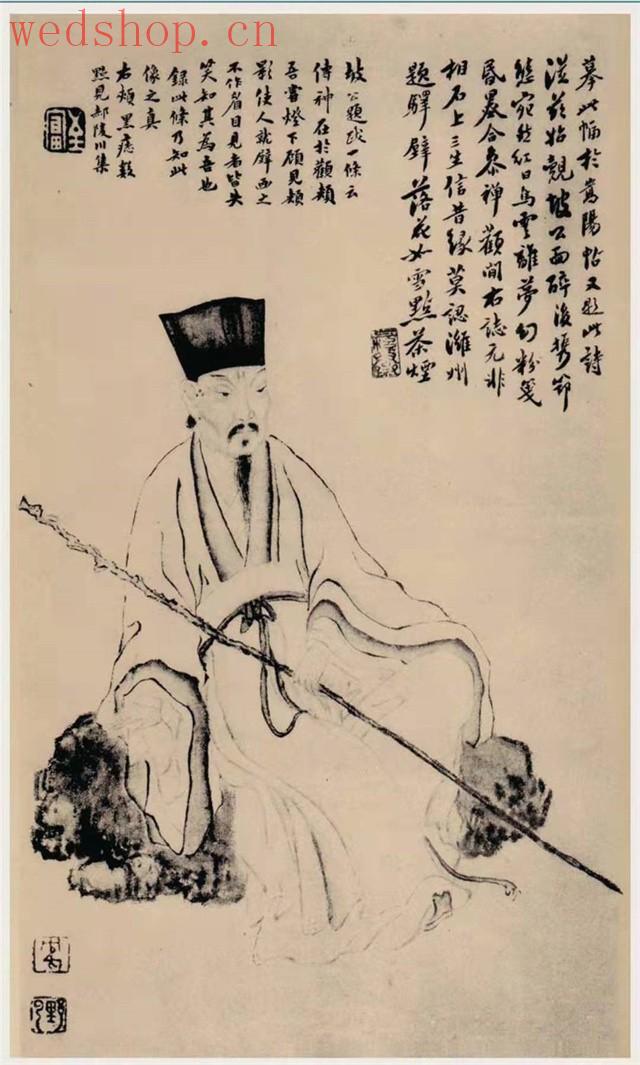 wedshop.cn
摹此幅於嵩陽帖又題此詩
始覩坡公面醉後攜笻
態宛然紅日烏雲離夢幻粉箋
昏晨合參禪顴間右誌元非
相石上三生信昔緣莫認濰州
題驛壁落花如雪點茶煙
坡公題跋一條云
傳神在於顴頰
吾嘗燈下顧見頰
影使人就壁畫之
不作眉目見者皆失
笑知其為吾也
録此條乃知此
像之真
右頰黑痣數
點見郝陵川集